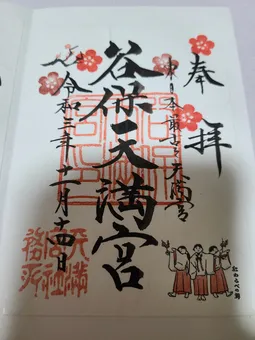 奉拝
東日本最古天満宮
谷保天満宮
令和三年十一月十四日
天満
宮社
務所